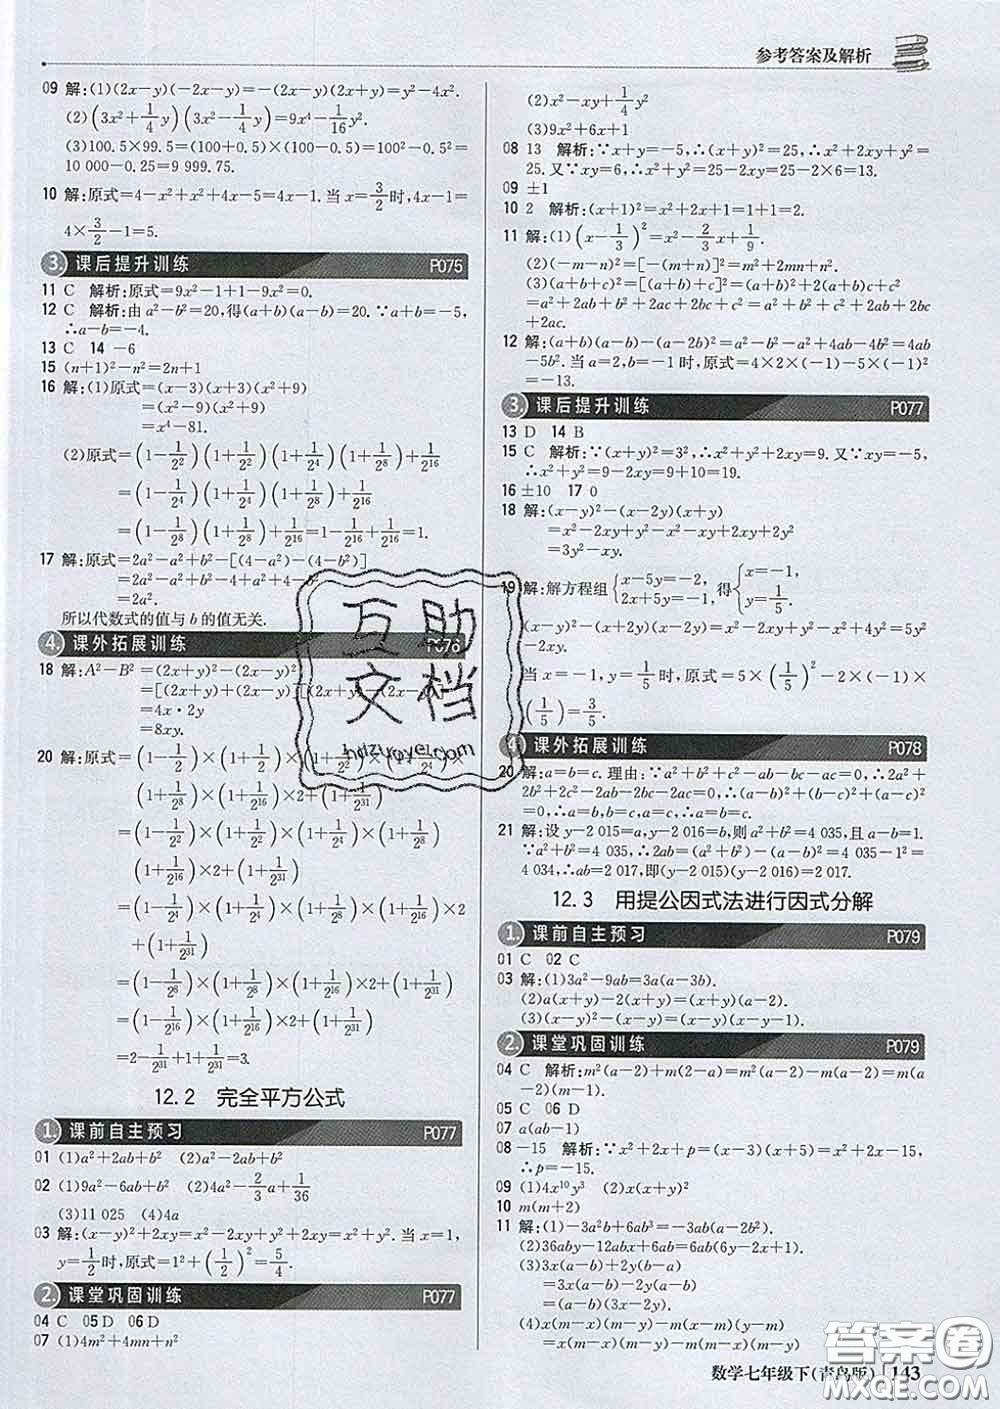 参考答案及解析
09 解:(1)(2x-y)(-2x-y)=-(2x-y)(2x+y)=y²-4x².
(2)(3x²+1/4y)(3x²-1/4y)=9x⁴-1/16y².
(3)100.5×99.5=(100+0.5)×(100-0.5)=100²-0.5²=
10 000-0.25=9 999.75.
10 解:原式=4-x²+x²+4x-5=4x-1.当x=3/2时,4x-1=
4×3/2-1=5.
3. 课后提升训练 P075
11 C 解析:原式=9x²-1+1-9x²=0.
12 C 解析:由a²-b²=20,得(a+b)(a-b)=20.∵a+b=-5,
∴a-b=-4.
13 C 14 -6
15 (n+1)²-n²=2n+1
16 解:(1)原式=(x-3)(x+3)(x²+9)
=(x²-9)(x²+9)
=x⁴-81.
(2)原式=(1-1/2²)(1+1/2²)(1+1/2⁴)(1+1/2⁸)+1/2¹⁶
=(1-1/2⁴)(1+1/2⁴)(1+1/2⁸)+1/2¹⁶
=(1-1/2⁸)(1+1/2⁸)+1/2¹⁶=1-1/2¹⁶+1/2¹⁶=1.
17 解:原式=2a²-a²+b²-[(4-a²)-(4-b²)]
=2a²-a²+b²-4+a²+4-b²
=2a².
所以代数式的值与b的值无关.
4. 课外拓展训练 P076
18 解:A²-B²=(2x+y)²-(2x-y)²
=[(2x+y)+(2x-y)][(2x+y)-(2x-y)]
=4x·2y
=8xy.
20 解:原式=(1-1/2)×(1+1/2)×(1+1/2²)×(1+1/2⁴)×
(1+1/2⁸)×(1+1/2¹⁶)×2+(1+1/2³¹)
=(1-1/2²)×(1+1/2²)×(1+1/2⁴)×(1+1/2⁸)
×(1+1/2¹⁶)×2+(1+1/2³¹)
=(1-1/2⁴)×(1+1/2⁴)×(1+1/2⁸)×(1+1/2¹⁶)×2
+(1+1/2³¹)
=(1-1/2⁸)×(1+1/2⁸)×(1+1/2¹⁶)×2+(1+1/2³¹)
=(1-1/2¹⁶)×(1+1/2¹⁶)×2+(1+1/2³¹)
=2-1/2³¹+1+1/2³¹=3.
12.2 完全平方公式
1. 课前自主预习 P077
01 (1)a²+2ab+b² (2)a²-2ab+b²
02 (1)9a²-6ab+b² (2)4a²-2/3a+1/36
(3)11 025 (4)4a
03 解:(x-y)²+2xy=x²-2xy+y²+2xy=x²+y².当x=1,
y=1/2时,原式=1²+(1/2)²=5/4
2. 课堂巩固训练 P077
04 C 05 D 06 D
07 (1)4m²+4mn+n²
(2)x²-xy+1/4y²
(3)9x²+6x+1
08 13 解析:∵x+y=-5,∴(x+y)²=25,∴x²+2xy+y²=
25.又∵xy=6,∴x²+y²=25-2xy=25-2×6=13.
09 ±1
10 2 解析:(x+1)²=x²+2x+1=1+1=2.
11 解:(1)(x-1/3)²=x²-2/3x+1/9.
(2)(-m-n)²=[-(m+n)]²=m²+2mn+n².
(3)(a+b+c)²=[(a+b)+c]²=(a+b)²+2(a+b)c+c²
=a²+2ab+b²+2ac+2bc+c²=a²+b²+c²+2ab+2bc
+2ac.
12 解:(a+b)(a-b)-(a-2b)²=a²-b²-a²+4ab-4b²=4ab
-5b².当a=2,b=-1时,原式=4×2×(-1)-5×(-1)²
=-13.
3. 课后提升训练 P077
13 D 14 B
15 C 解析:∵(x+y)²=3²,∴x²+y²+2xy=9.又∵xy=
-5,∴x²+y²=9-2xy=9+10=19.
16 ±10 17 0
18 解:(x-y)²-(x-2y)(x+y)
=x²-2xy+y²-x²-xy+2xy+2y²
=3y²-xy.
19 解:解方程组{x-5y=-2, 2x+5y=-1, 得{x=-1, y=1/5.
(x-y)²-(x+2y)(x-2y)=x²-2xy+y²-x²+4y²=5y²
-2xy.
当x=-1,y=1/5时,原式=5×(1/5)²-2×(-1)×
(1/5)=3/5.
4. 课外拓展训练 P078
20 解:a=b=c.理由:∵a²+b²+c²-ab-bc-ac=0,∴2a²+
2b²+2c²-2ab-2bc-2ac=0,∴(a-b)²+(b-c)²+(a-c)²
=0,∴a=b,b=c,a=c,∴a=b=c.
21 解:设y-2 015=a,y-2 016=b,则a²+b²=4 035,且a-b=1.
∵a²+b²=4 035,∴2ab=(a²+b²)-(a-b)²=4 035-1=
4 034,∴ab=2 017,即(y-2 015)(y-2 016)=2 017.
12.3 用提公因式法进行因式分解
1. 课前自主预习 P079
01 C 02 C
03 解:(1)3a²-9ab=3a(a-3b).
(2)a(x+y)-2(x+y)=(x+y)(a-2).
(3)(x-y)²-(x-y)=(x-y)(x-y-1).
2. 课堂巩固训练 P079
04 C 解析:m²(a-2)+m(2-a)=m²(a-2)-m(a-2)=m(a
-2)(m-1).
05 C 06 D
07 a(ab-1)
08 -15 解析:∵x²+2x+p=(x-3)(x+5)=x²+2x-15,
∴p=-15.
09 (1)4x¹⁰y³ (2)x(x+y)²
10 m(m+2)
11 解:(1)-3a²b+6ab³=-3ab(a-2b²).
(2)36aby-12abx+6ab=6ab(6y-2x+1).
(3)3x(a-b)-2y(b-a)
=3x(a-b)+2y(a-b)
=(a-b)(3x+2y).
(4)x(m-x)(m-y)-m(x-m)(y-m)
=x(m-x)(m-y)-m(m-x)(m-y)
数学七年级下(青岛版) 143
互助文档
hdzuoyei.com
答案圈
MXQE.COM